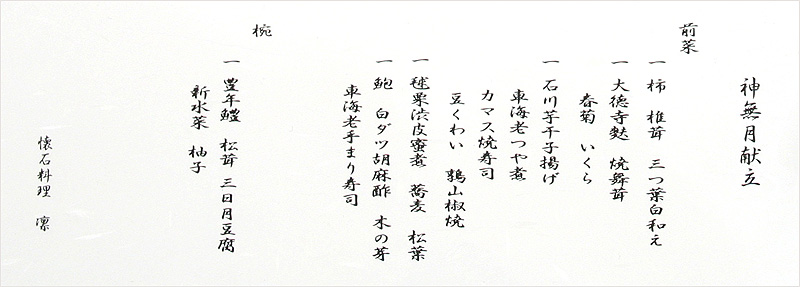 神無月献立
前菜
一 柿 椎茸 三つ葉白和え
一 大徳寺麩 焼舞茸
春菊 いくら
一 石川芋干子揚げ
車海老つや煮
カマス焼寿司
豆くわい 鶉山椒焼
一 毬栗渋皮蜜煮 蕎麦 松葉
一 鮑 白ダツ胡麻酢 木の芽
車海老手まり寿司
椀
一 豊年鱧 松茸 三日月豆腐
新水菜 柚子
懐石料理 凛